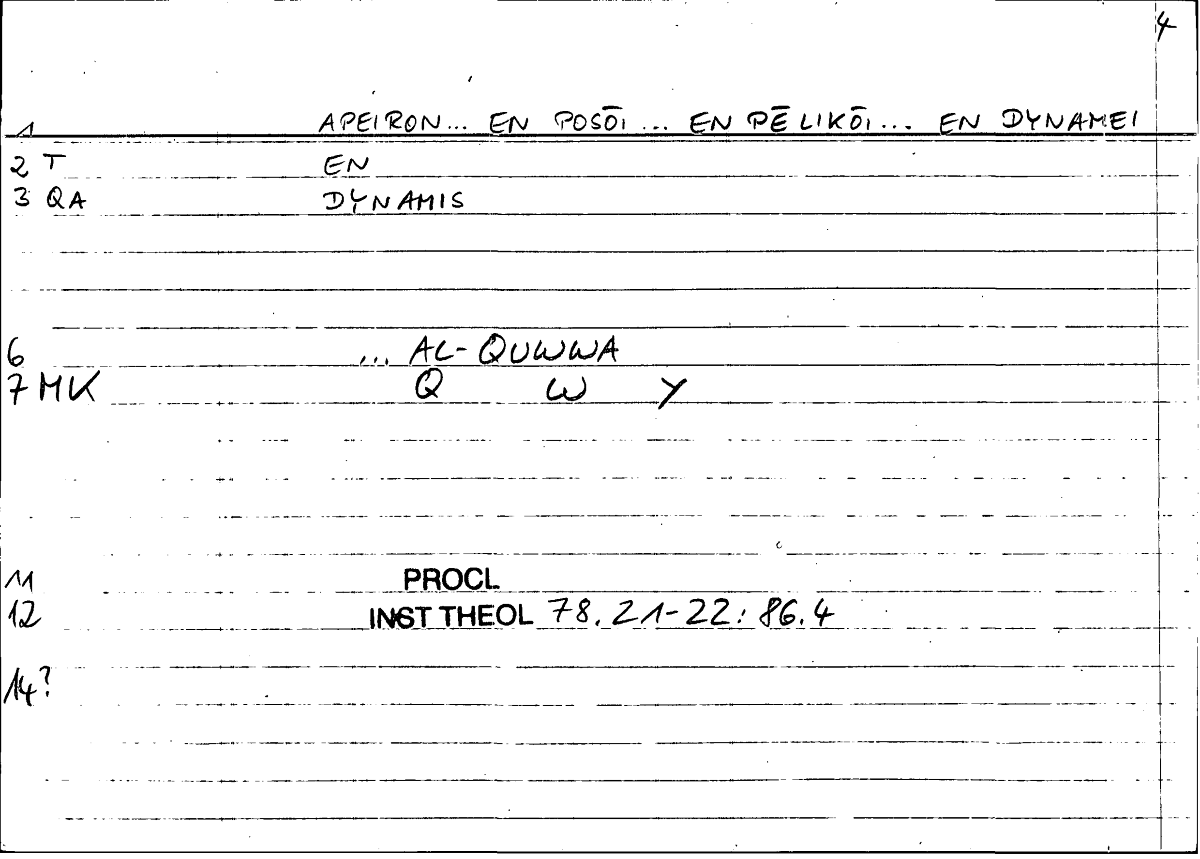 4
1 APEIRON... EN POSŌI ... EN PĒLIKŌI... EN DYNAMEI
2 T EN
3 QA DYNAMIS
6 ... AL-QUWWA
7 MK Q W Y
11 PROCL
12 INST THEOL 78.21-22: 86.4
14?